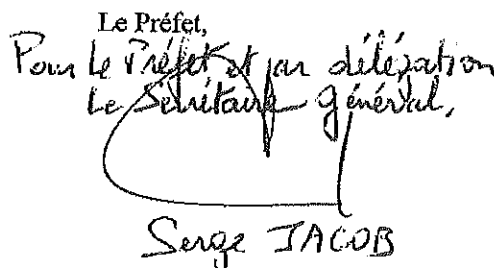 Le Préfet,
Pour Le Préfet et par délégation
Le Secrétaire général,
Serge JACOB